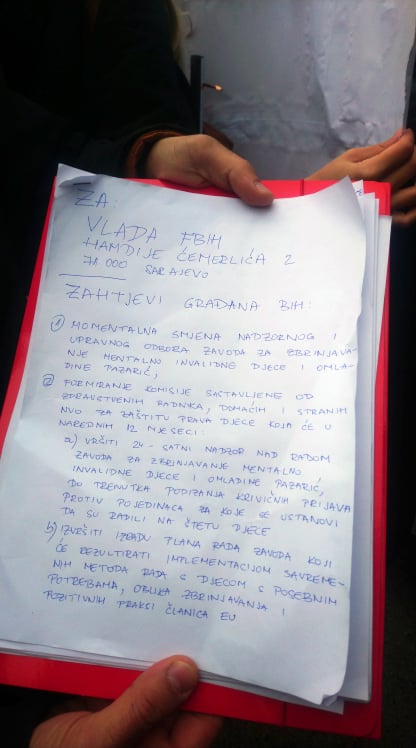 ZA:
VLADA FBIH
HAMDIJE ĆEMERLIĆA 2
71 000 SARAJEVO
ZAHTJEVI GRAĐANA BIH:
1) MOMENTALNA SMJENA NADZORNOG I
UPRAVNOG ODBORA ZAVODA ZA ZBRINJAVA-
NJE MENTALNO INVALIDNE DJECE I OMLA-
DINE PAZARIĆ;
2) FORMIRANJE KOMISIJE SASTAVLJENE OD
ZDRAVSTVENIH RADNIKA, DOMAĆIH I STRANIH
NVO ZA ZAŠTITU PRAVA DJECE KOJA ĆE U
NAREDNIH 12 MJESECI:
a) VRŠITI 24-SATNI NADZOR NAD RADOM
ZAVODA ZA ZBRINJAVANJE MENTALNO
INVALIDNE DJECE I OMLADINE PAZARIĆ,
DO TRENUTKA PODIZANJA KRIVIČNIH PRIJAVA
PROTIV POJEDINACA ZA KOJE SE USTANOVI
DA SU RADILI NA ŠTETU DJECE
b) IZVRŠITI IZRADU PLANA RADA ZAVODA KOJI
ĆE REZULTIRATI IMPLEMENTACIJOM SAVREME-
NIH METODA RADA S DJECOM S POSEBNIM
POTREBAMA, OBLIKA ZBRINJAVANJA I
POZITIVNIH PRAKSI ČLANICA EU